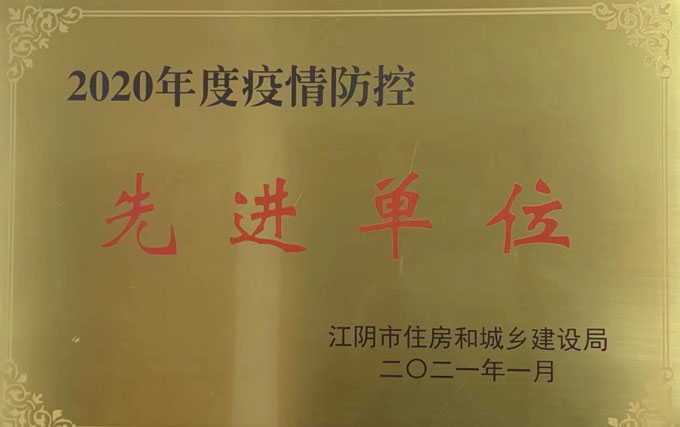 2020年度疫情防控
先进单位
江阴市住房和城乡建设局
二〇二一年一月